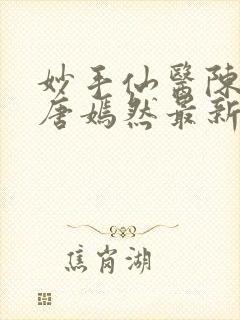 妙手仙醫陳
唐嫣然最新
焦岗湖